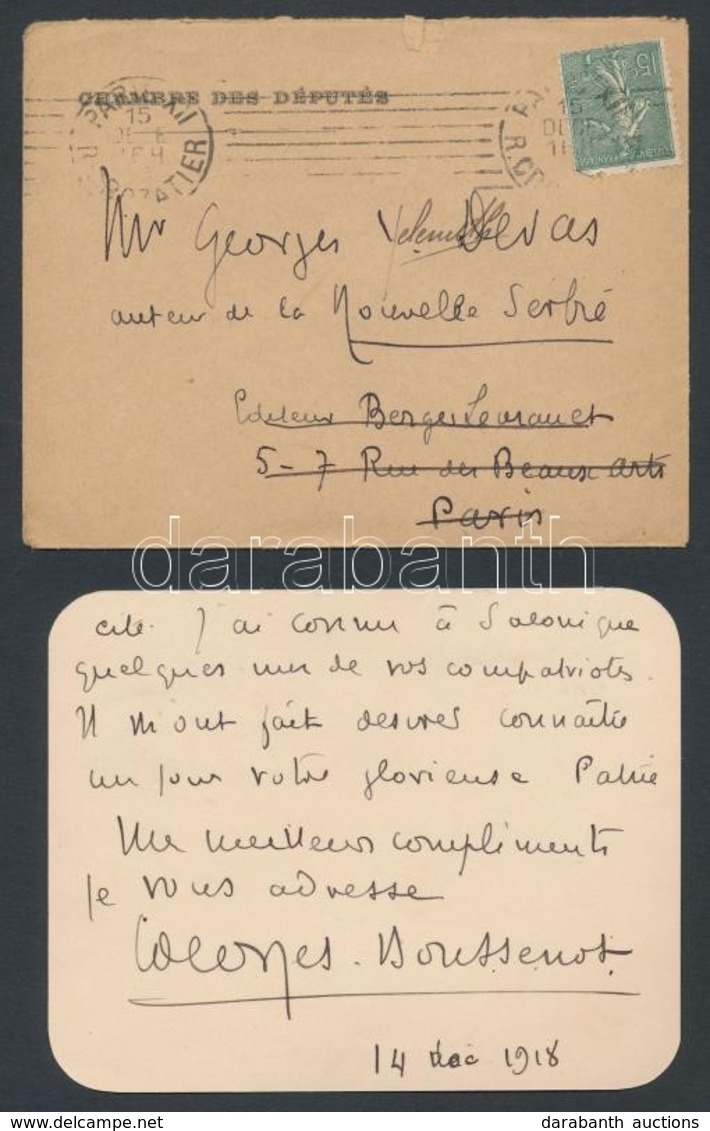 CHAMBRE DES DÉPUTÉS
PARIS XII
15
DEC
R. CROZATIER
15
Mr Georges Devas
auteur de la Nouvelle Serbie
Editeur Berger Levrault
5-7 Rue des Beaux arts
Paris
darabanth
cité. J'ai connu à Salonique
quelques uns de vos compatriotes.
Il m'ont fait desirer connaître
un jour votre glorieuse Patrie
Mes meilleurs compliments
je vous adresse
Georges. Boussenot
14 dec 1918
darabanth auctions
www.delcampe.net